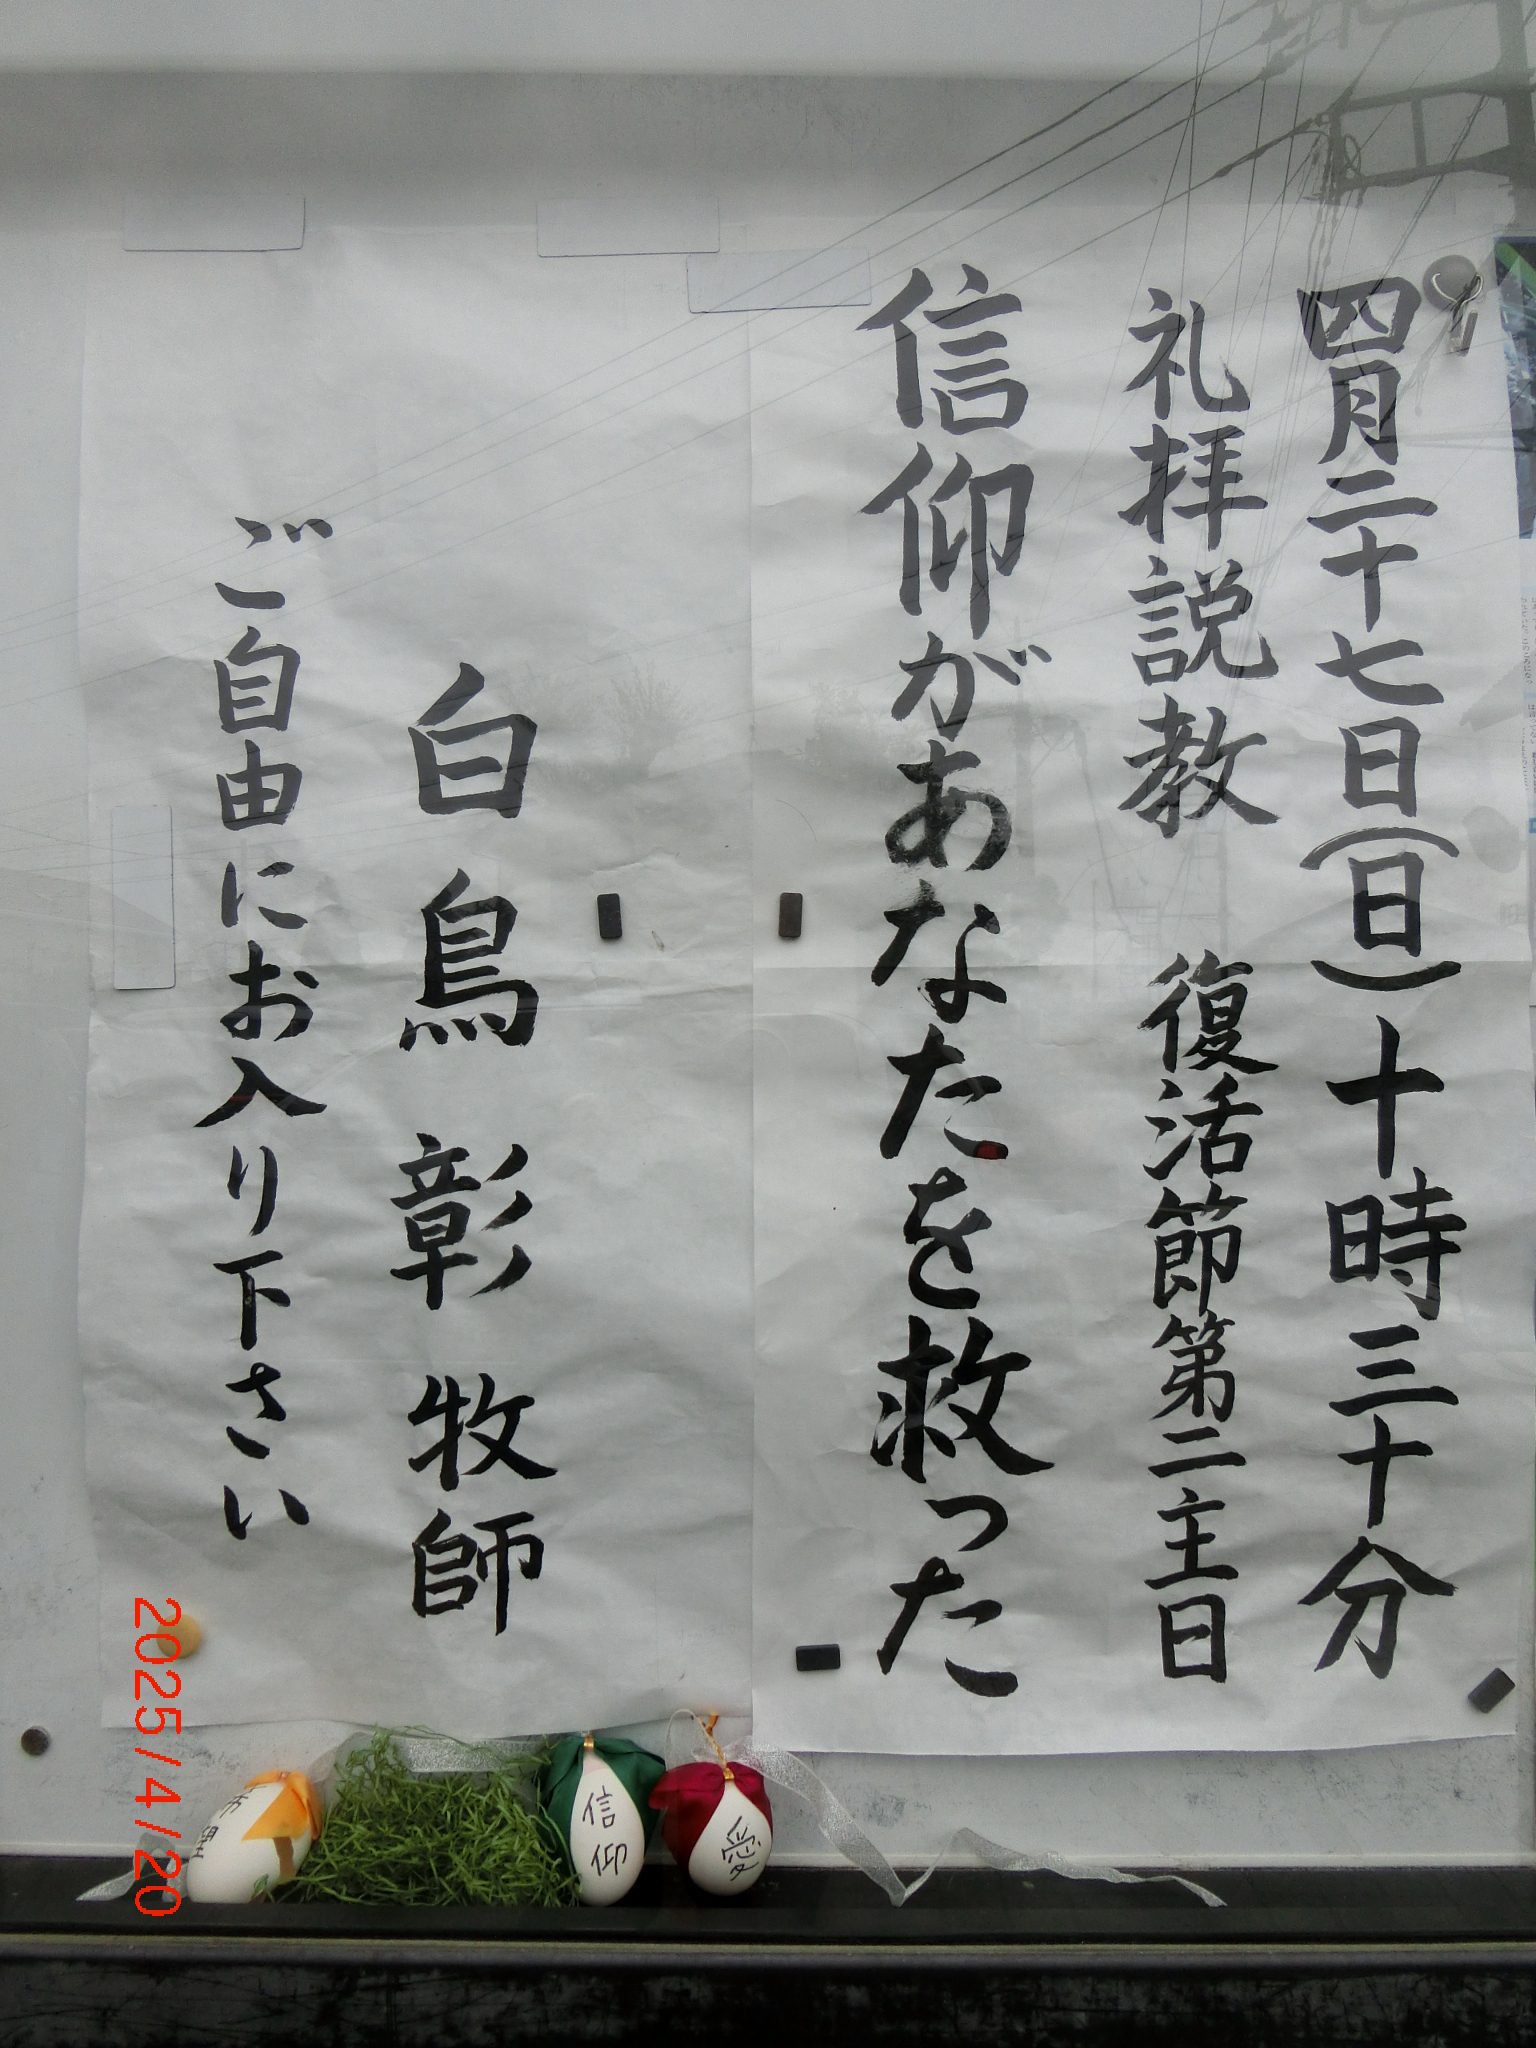 四月二十七日(日)十時三十分
礼拝説教 復活節第二主日
信仰があなたを救った
白鳥 彰 牧師
ご自由にお入り下さい
希望
信仰
愛
2025/4/20